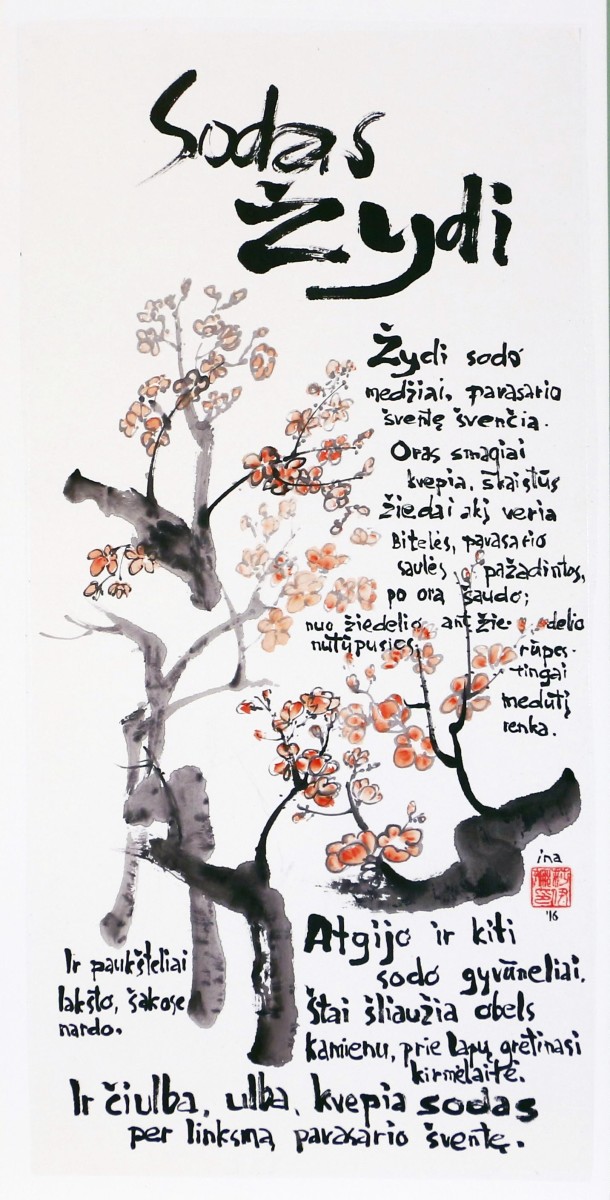 Sodas
Žydi
Žydi sodo
medžiai, pavasario
šventę švenčia.
Oras smagiai
kvepia, skaistūs
žiedai akį veria
Bitelės, pavasario
saulės pažadintos,
po orą šaudo;
nuo žiedelio ant žiedelio
nutūpusios, rūpes-
tingai
medutį
renka.
ina
'16
Atgijo ir kiti
sodo gyvūneliai.
Štai šliaužia obels
kamienu, prie lapų gretinasi
kirmėlaitė.
Ir paukšteliai
lakšto, šakose
nardo.
Ir čiulba, ulba, kvepia sodas
per linksmą pavasario šventę.